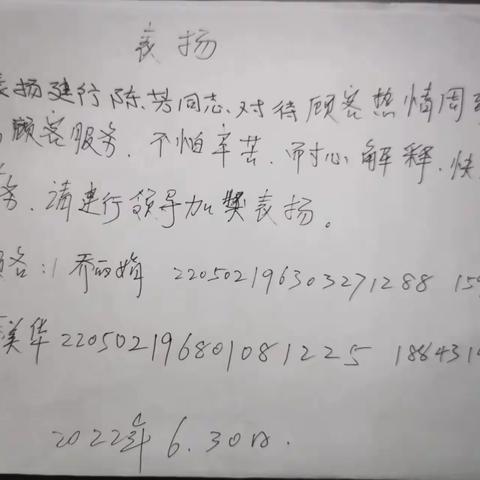 表扬
表扬建行陈芳同志、对待顾客热情周到
顾客服务、不怕辛苦、耐心解释、快
务、请建行领导加奖表扬。
客:乔丽娟 220502196303271288 15
美华 220502196801081225 188431
2022年6.30日.